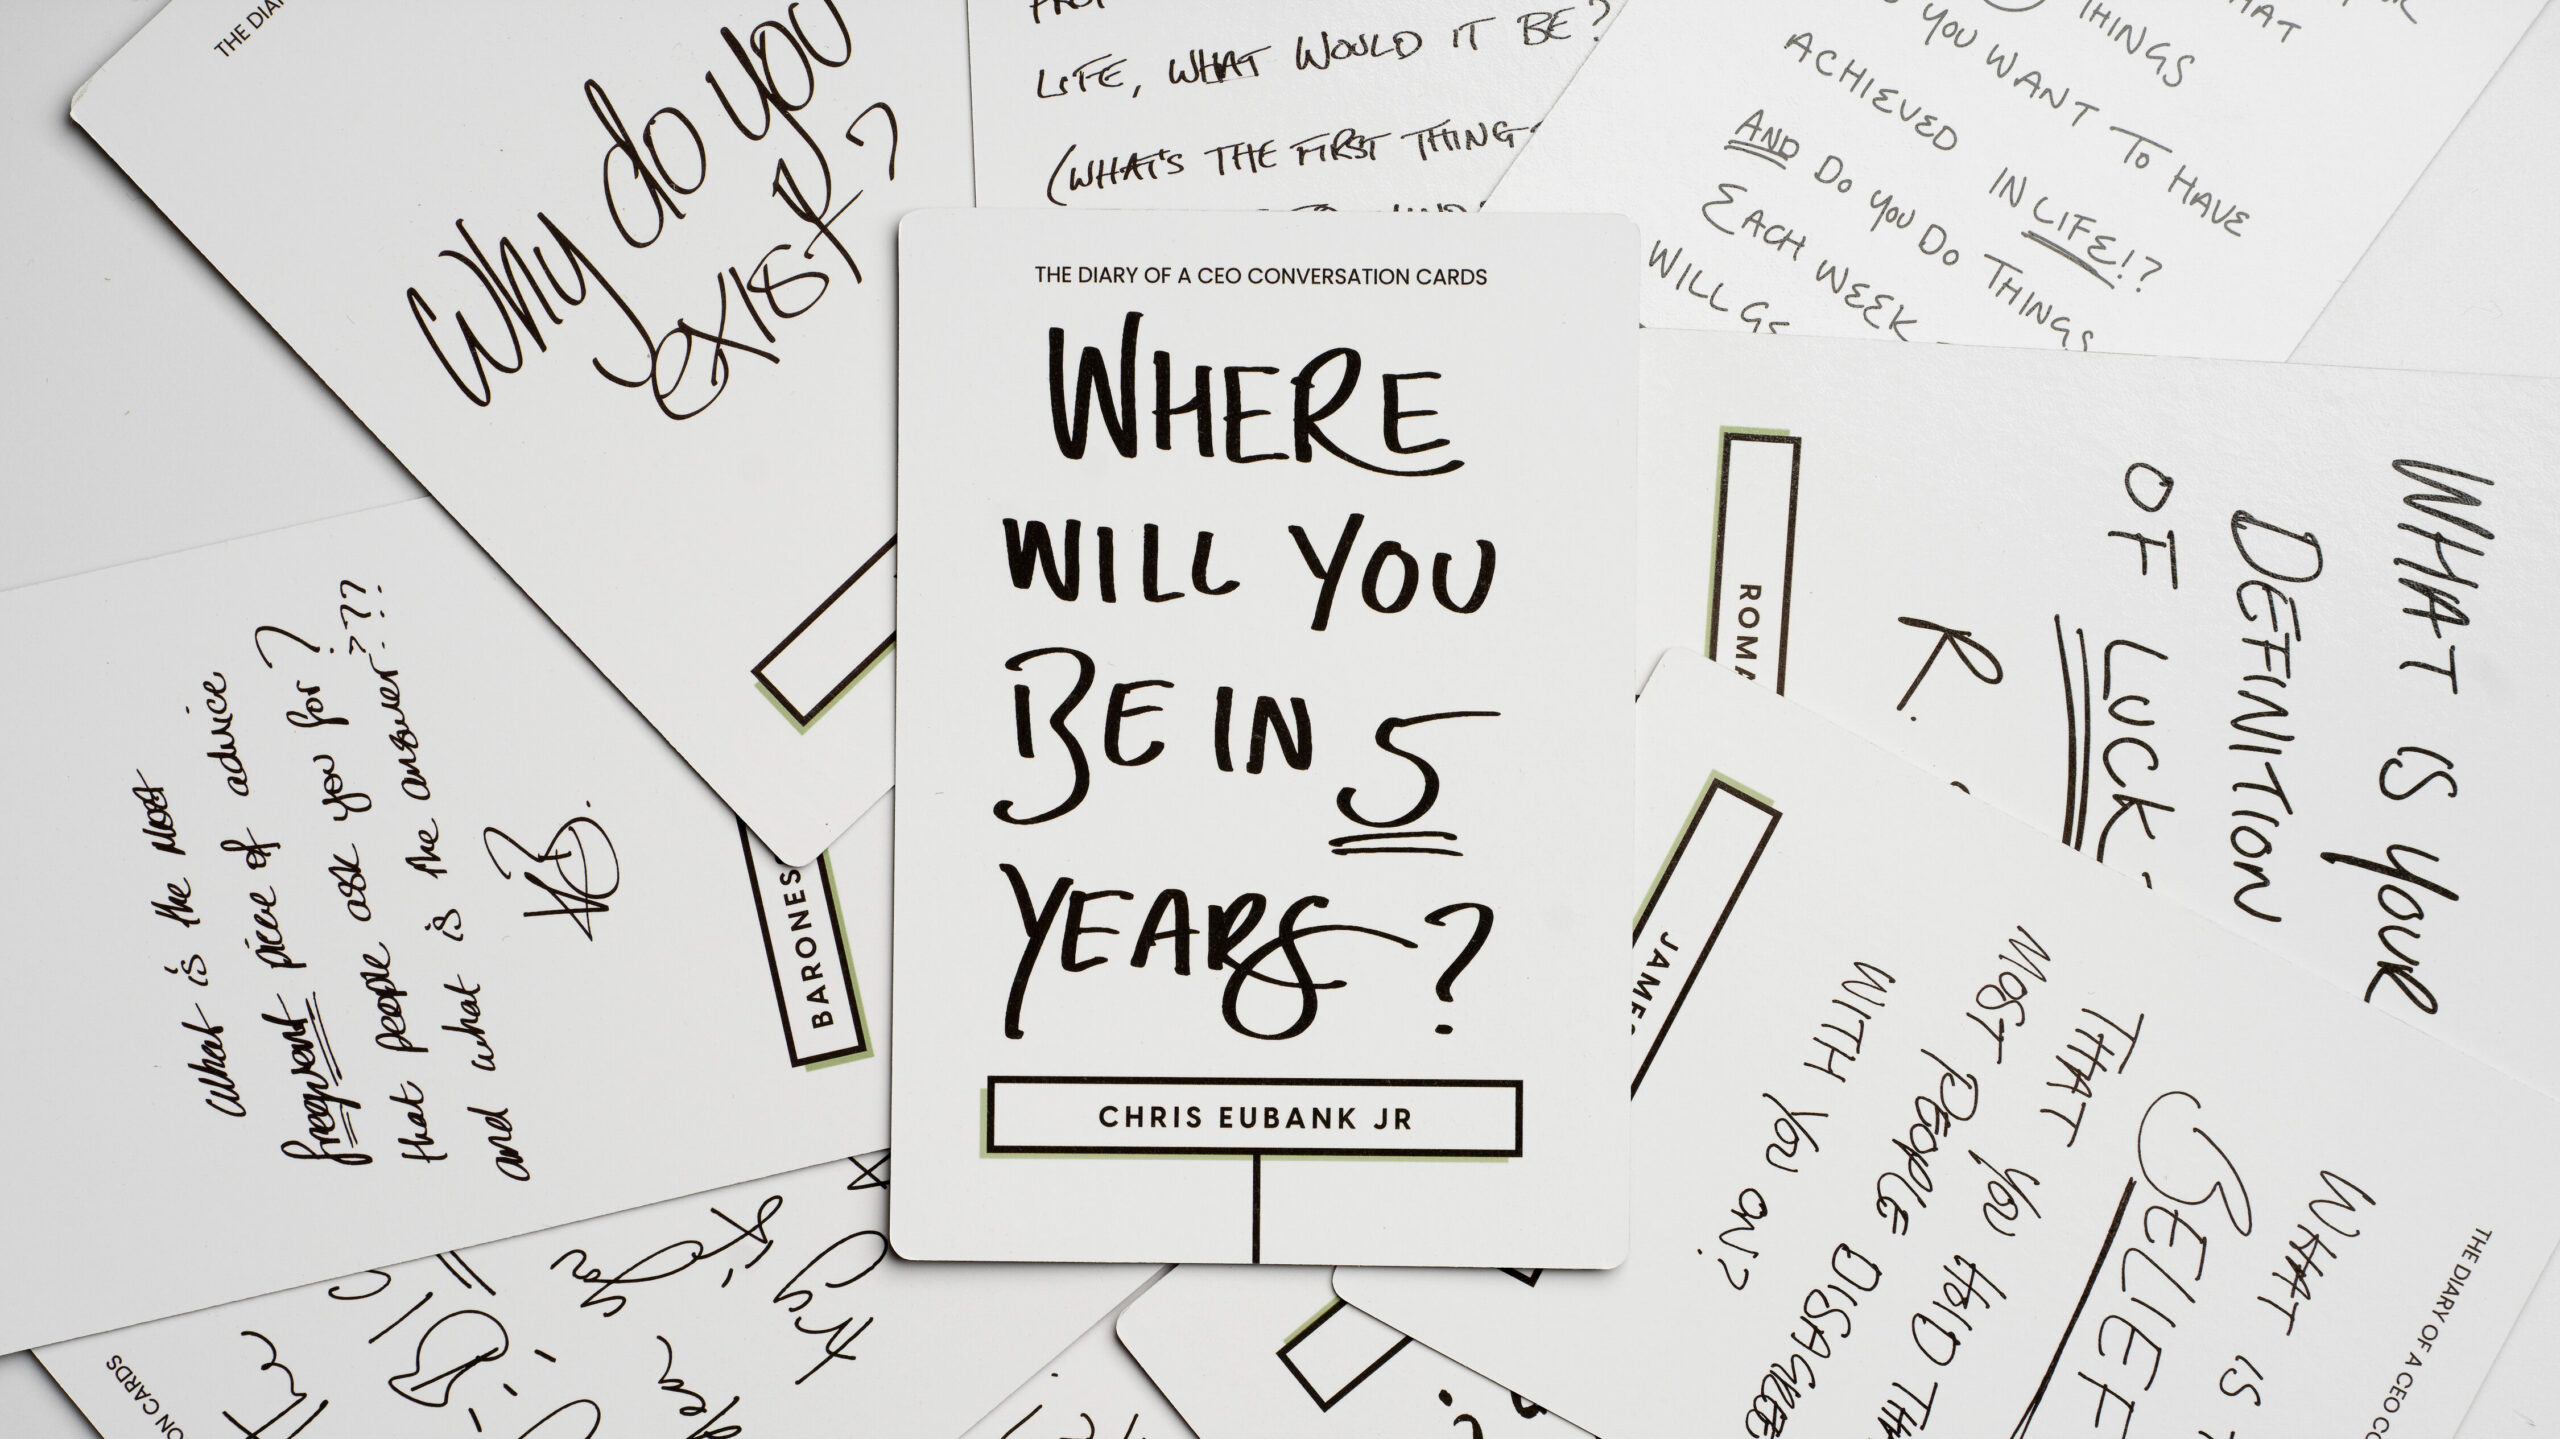 THE DIARY OF A CEO CONVERSATION CARDS
WHERE
WILL YOU
BE IN 5
YEARS?
CHRIS EUBANK JR
THE
Why do you
exist?
LIFE, WHAT WOULD IT BE?
(WHAT'S THE FIRST THING
THINGS
YOU WANT TO HAVE
ACHIEVED IN LIFE!?
AND DO YOU DO THINGS
EACH WEEK
WILL
WHAT IS YOUR
DEFINITION
OF LUCK
R.
What is the most
frequent piece of advice
that people ask you for?
and what is the answer???
BARONES
WHAT IS
BELIEF
THAT YOU HOLD THA
MOST PEOPLE DISAGREE
WITH YOU ON?
THE DIARY OF A CEO CO
ON CARDS
you
try